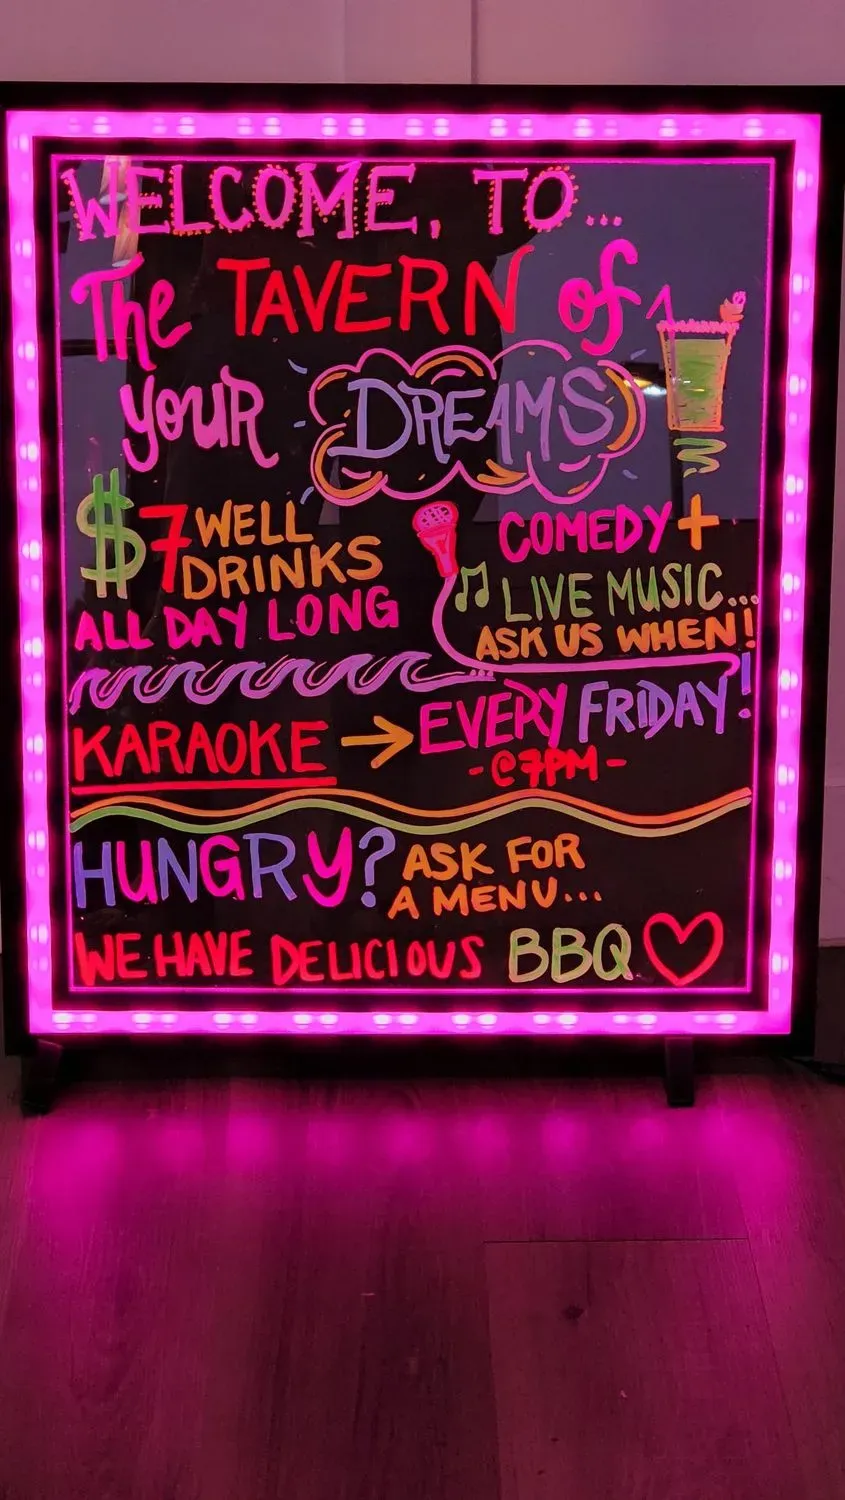 WELCOME, TO...
The TAVERN of
your DREAMS
$7 WELL
DRINKS
ALL DAY LONG
COMEDY +
LIVE MUSIC...
ASK US WHEN!
KARAOKE → EVERY FRIDAY!
-@7PM-
HUNGRY? ASK FOR
A MENU...
WE HAVE DELICIOUS BBQ